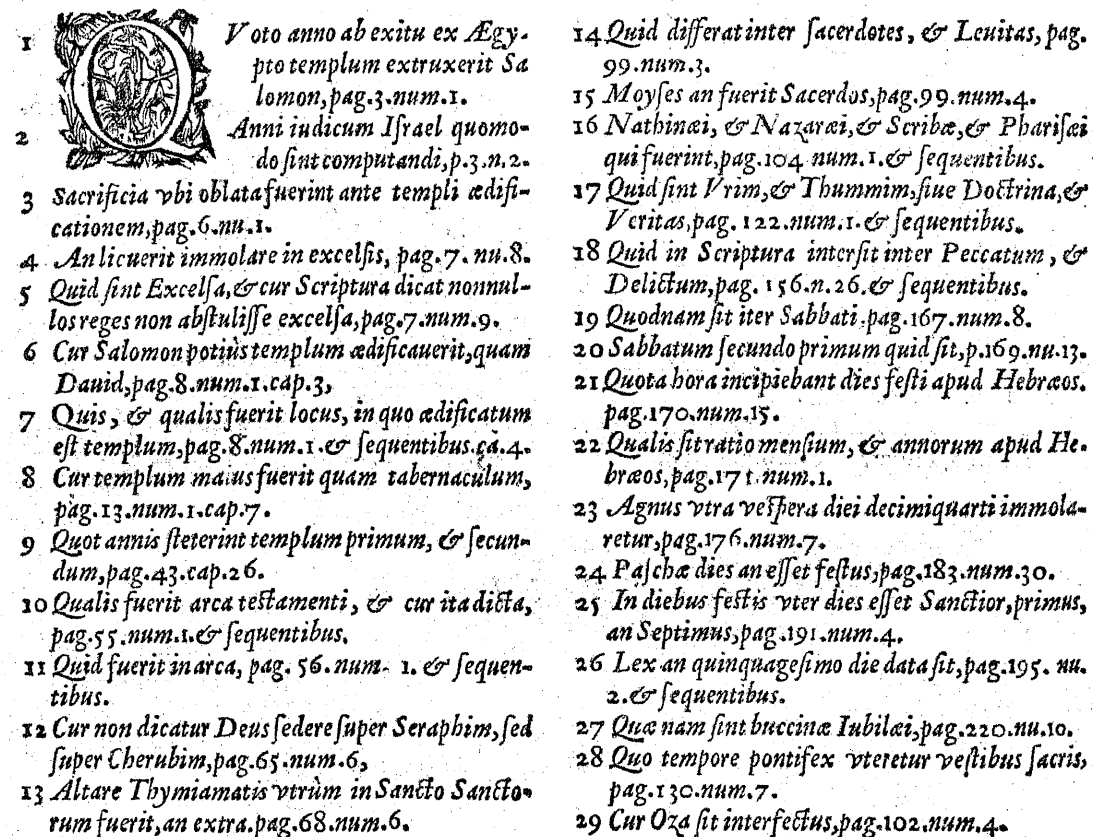 1 QVoto anno ab exitu ex Ægy-
pto templum extruxerit Sa
lomon, pag.3.num.1.
2 Anni iudicum Iſrael quomo-
do ſint computandi, p.3.n.2.
3 Sacrificia vbi oblata fuerint ante templi ædifi-
cationem, pag.6.nu.1.
4 An licuerit immolare in excelſis, pag.7. nu.8.
5 Quid ſint Excelſa, & cur Scriptura dicat nonnul-
los reges non abſtuliſſe excelſa, pag.7.num.9.
6 Cur Salomon potiùs templum ædificauerit, quam
Dauid, pag.8.num.1.cap.3,
7 Quis, & qualis fuerit locus, in quo ædificatum
eſt templum, pag.8.num.1.& ſequentibus.ca.4.
8 Cur templum maius fuerit quam tabernaculum,
pag.13.num.1.cap.7.
9 Quot annis ſteterint templum primum, & ſecun-
dum, pag.43.cap.26.
10 Qualis fuerit arca teſtamenti, & cur ita dicta,
pag.55.num.1.& ſequentibus.
11 Quid fuerit in arca, pag. 56.num- 1. & ſequen-
tibus.
12 Cur non dicatur Deus ſedere ſuper Seraphim, ſed
ſuper Cherubim, pag.65.num.6,
13 Altare Thymiamatis vtrùm in Sancto Sancto-
rum fuerit, an extra.pag.68.num.6.
14 Quid differat inter ſacerdotes, & Leuitas, pag.
99.num.3.
15 Moyſes an fuerit Sacerdos, pag.99.num.4.
16 Nathinæi, & Nazaræi, & Scribæ, & Phariſæi
qui fuerint, pag.104 num.1.& ſequentibus.
17 Quid ſint Vrim, & Thummim, ſiue Doctrina, &
Veritas, pag. 122.num.1.& ſequentibus.
18 Quid in Scriptura interſit inter Peccatum, &
Delictum, pag. 156.n.26.& ſequentibus.
19 Quodnam ſit iter Sabbati, pag.167.num.8.
20 Sabbatum ſecundo primum quid ſit, p.169.nu.13.
21 Quota hora incipiebant dies feſti apud Hebræos.
pag.170.num.15.
22 Qualis ſit ratio menſium, & annorum apud He-
bræos, pag.171.num.1.
23 Agnus vtra veſpera diei decimiquarti immola-
retur, pag.176.num.7.
24 Paſchæ dies an eſſet feſtus, pag.183.num.30.
25 In diebus feſtis vter dies eſſet Sanctior, primus,
an Septimus, pag.191.num.4.
26 Lex an quinquageſimo die data ſit, pag.195. nu.
2.& ſequentibus.
27 Quæ nam ſint buccinæ Iubilæi, pag.220.nu.10.
28 Quo tempore pontifex vteretur veſtibus ſacris,
pag.130.num.7.
29 Cur Oza ſit interfectus, pag.102.num.4.